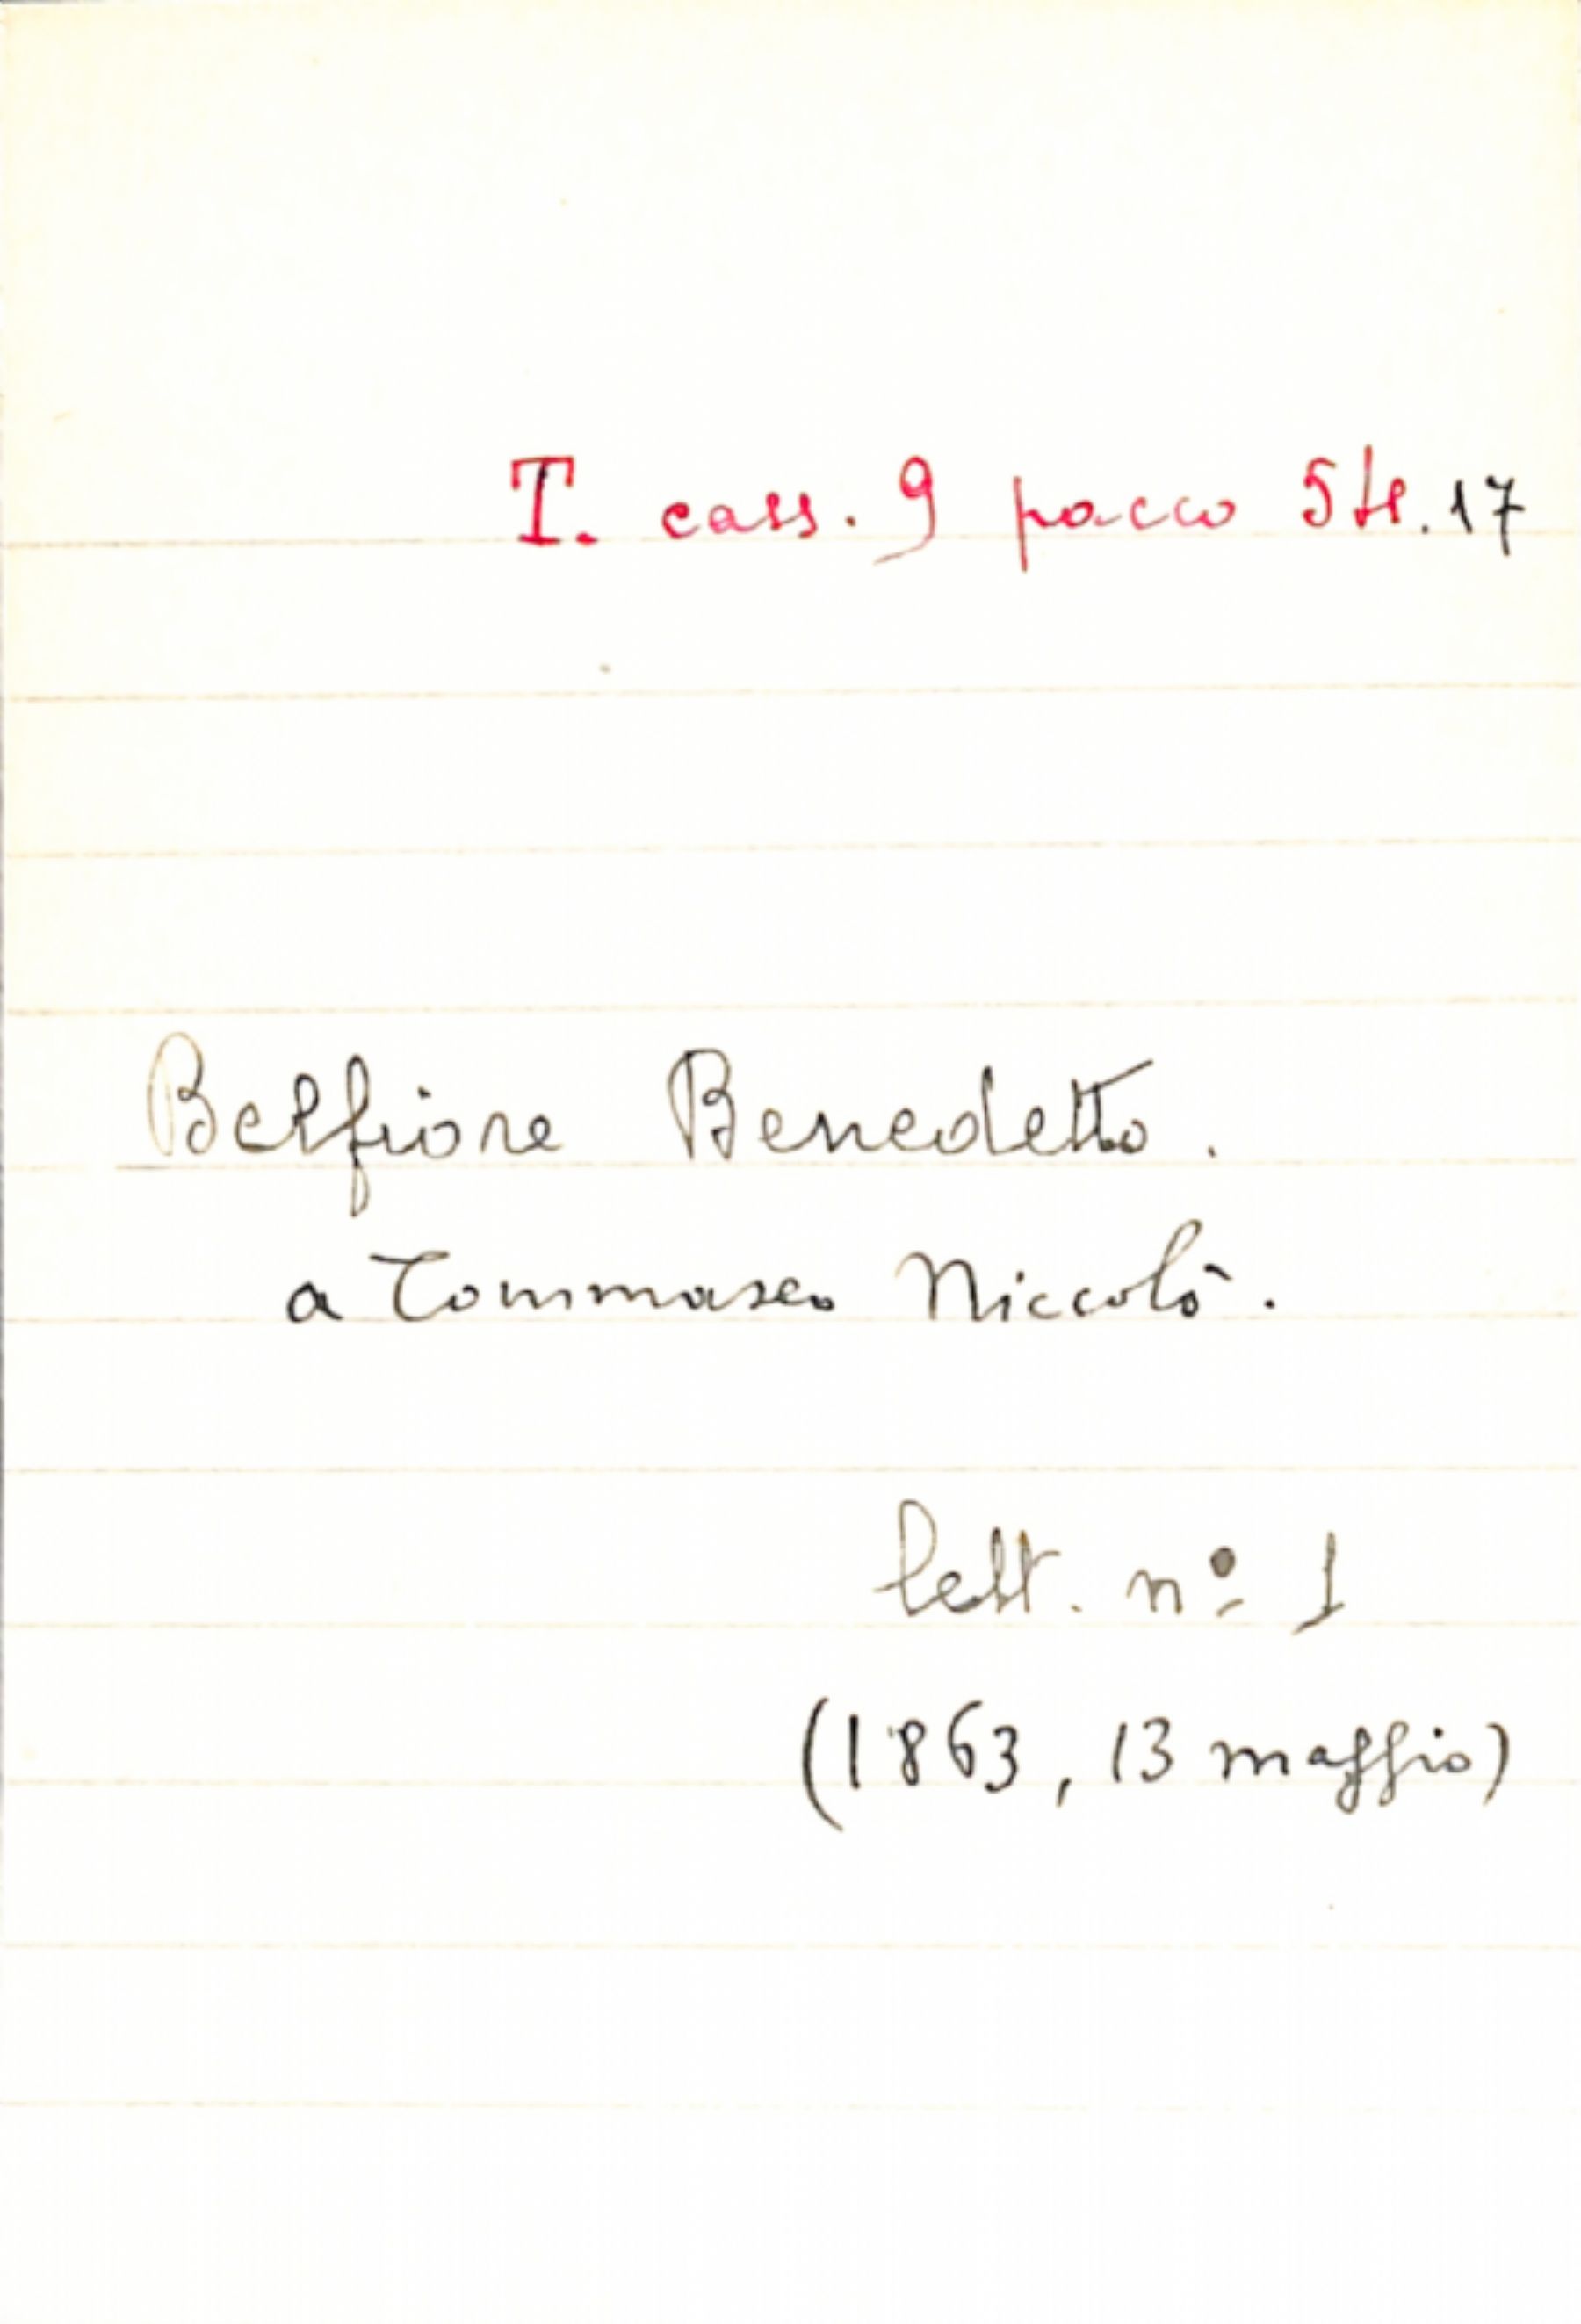 T. cass. 9 pacco 54. 17
Belfiore Benedetto.
a Tommaseo Niccolò.
lett. nº 1
(1863, 13 maggio)